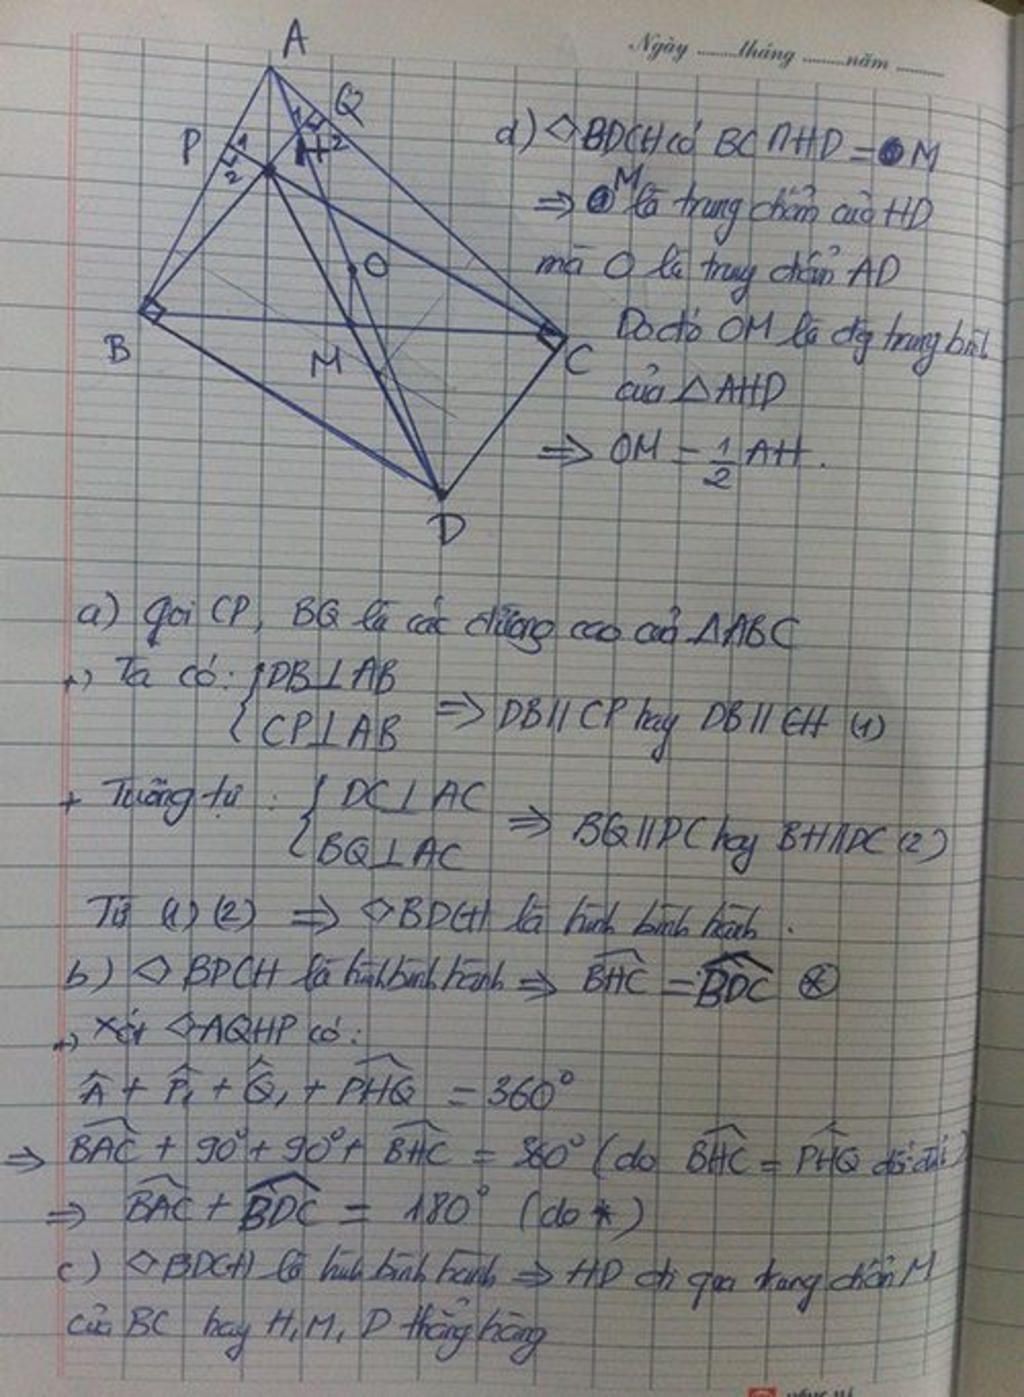 Ngày ........tháng ........năm ........
A
Q
P
1
2
1
2
H
O
B
M
C
D
d) ◇BDCH có BC ∩ HD = M
⇒ M là trung điểm của HD
mà O là trung điểm AD
Do đó OM là đg trung bình
của △AHD
⇒ OM = 1/2 AH.
a) Gọi CP, BQ là các đường cao của △ABC
+) Ta có: { DB ⊥ AB
CP ⊥ AB ⇒ DB // CP hay DB // CH (1)
+ Tương tự : { DC ⊥ AC
BQ ⊥ AC ⇒ BQ // DC hay BH // DC (2)
Từ (1) (2) ⇒ ◇BDCH là hình bình hành.
b) ◇ BDCH là hình bình hành ⇒ BHC^ = BDC^ (*)
+) Xét ◇AQHP có:
A^ + P^1 + Q^1 + PHQ^ = 360°
⇒ BAC^ + 90° + 90° + BHC^ = 360° (do BHC^ = PHQ^ đối đỉnh)
⇒ BAC^ + BDC^ = 180° (do *)
c) ◇BDCH là hình bình hành ⇒ HD đi qua trung điểm M
của BC hay H, M, D thẳng hàng